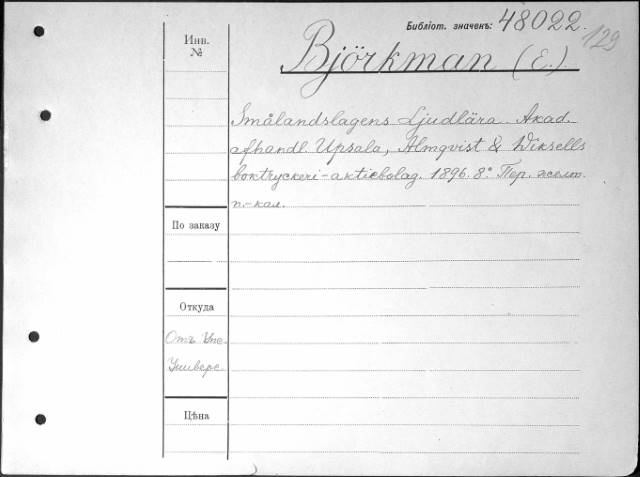 Библіот. значекъ: 48022.
129
Инв.
№
Björkman (E.)
Smålandslagens Ljudlära. Akad.
afhandl. Upsala, Almqvist & Wiksells
boktryckeri-aktiebolag. 1896. 8° Пер. желт.
п.-кал.
По заказу
Откуда
Отъ Упс.
Универс.
Цѣна